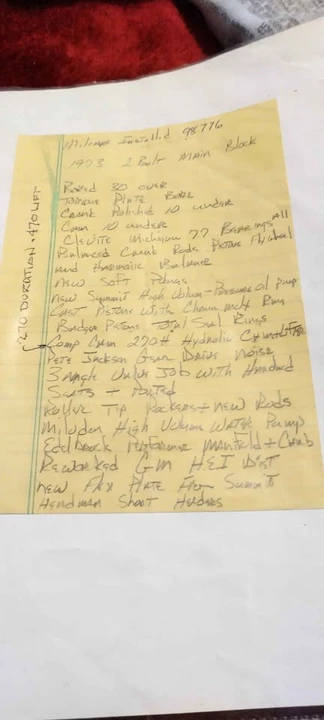 Milage Installed 98776
1973 2 Bolt Main Block
Bored 30 over
Torque Plate Bore
Crank Polished 10 under
Cam 10 under
Clevite Michigan 77 Bearings all
Balanced Crank Rods Pistons Flywheel
and Harmonic Balancer
New Soft Plugs
New Summit High Volum-Pressure Oil Pump
Cast Pistons with Chrom Moly Ring
Badger Pistons Total Seal Rings
Comp Cam 270H Hydrolic Cam + Lifter
Pete Jackson Gear Drive Noise
3 Angle Valve Job with Hardend
Seats + Ported
Roller Tip Rockers + New Rods
Milodon High Volum Water Pump
Edelbrock Performer Manifold + Carb
Reworked GM HEI Dist
New Flex Plate From Summit
Hendman Short Headers
270 DURATION .470 LIFT